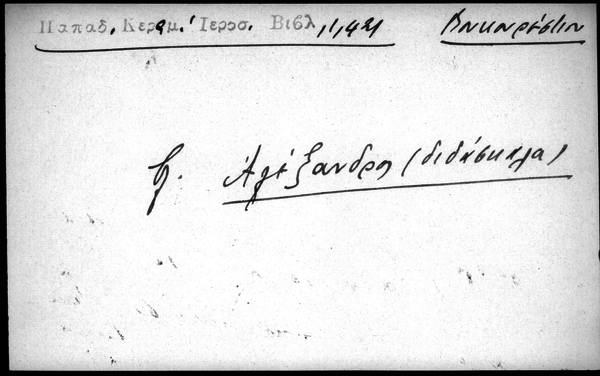 Παπαδ. Κεραμ. Ιεροσ. Βιβλ, 1, 421 Βουκουρέστιον
β. Ἀλέξανδρος (διδάσκαλος)